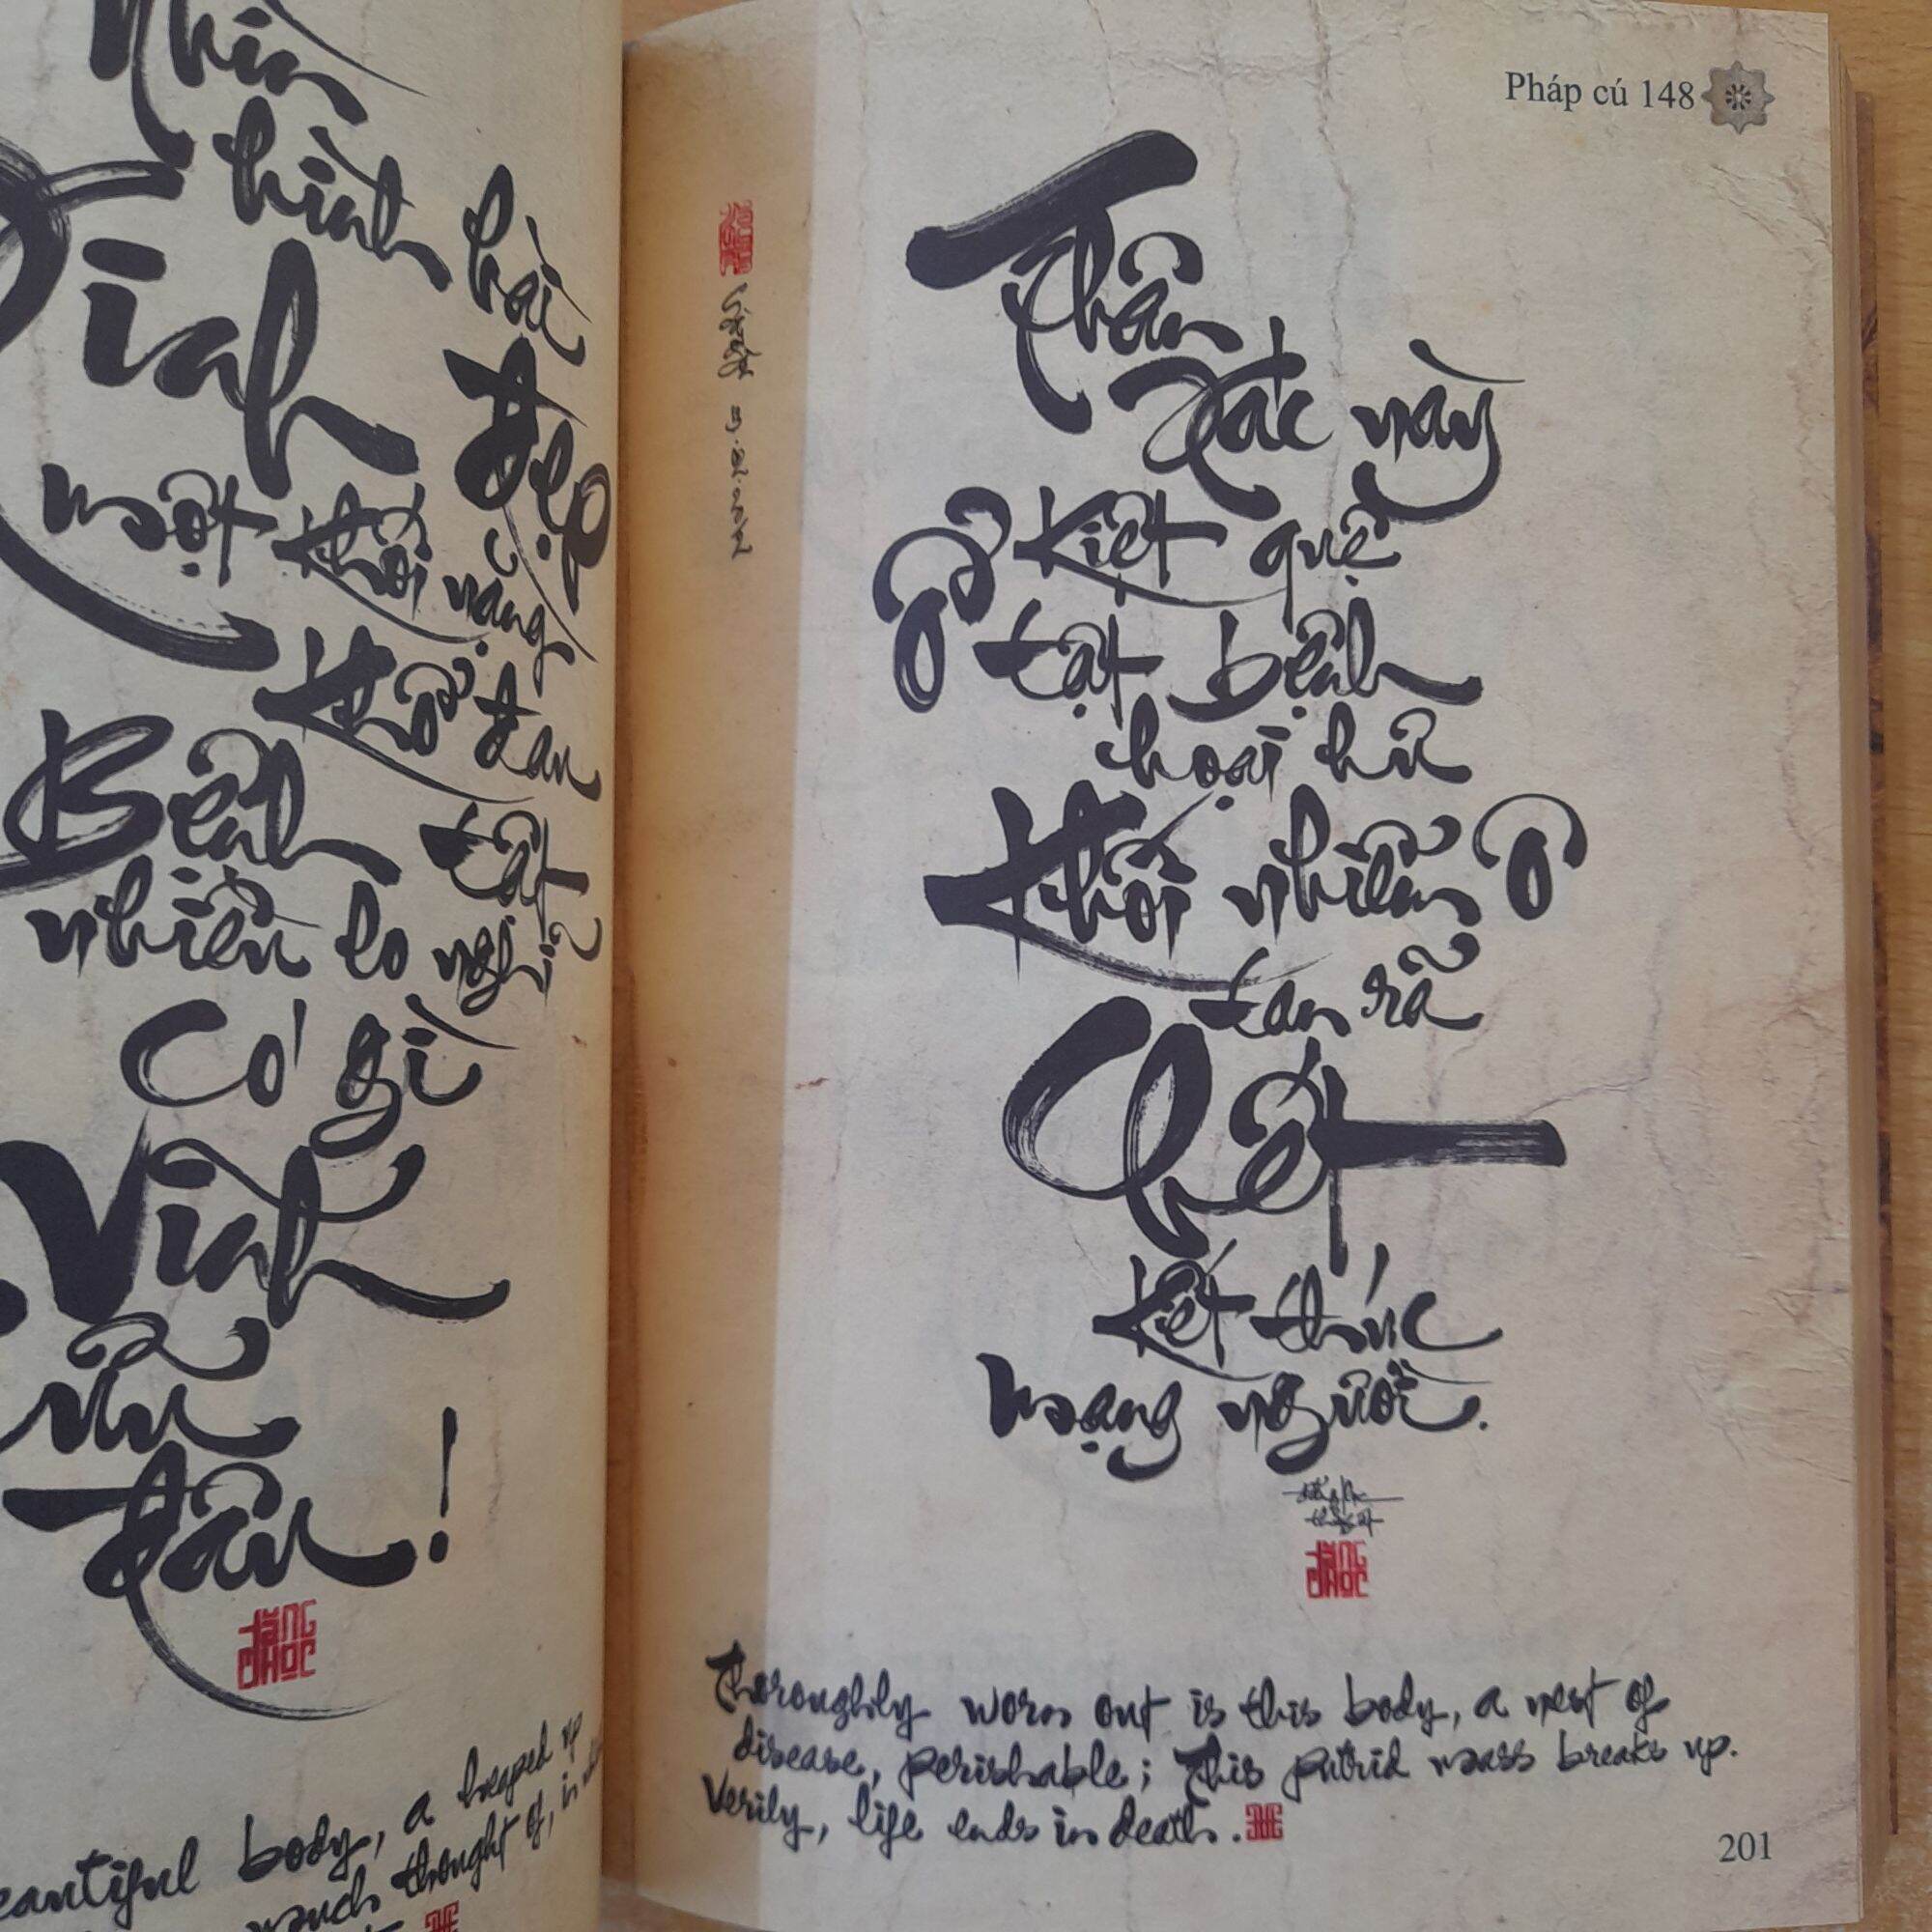 Nhìn
hình hài
xinh đẹp
một khối nặng
khổ đau
Bệnh tật
nhiều lo nghĩ
Có gì
Vĩnh
viễn
đâu!
ĐĂNG HỌC
eautiful body, a heaped up
much thought of, in
Pháp cú 148
Thân
xác này
Kiệt quệ
Ổ tật bệnh
hoại hư
Khối nhiễm ô
tan rã
Chết
kết thúc
mạng người.
ĐĂNG HỌC
Thoroughly worn out is this body, a nest of
disease, perishable; This putrid mass breaks up.
Verily, life ends in death.
201